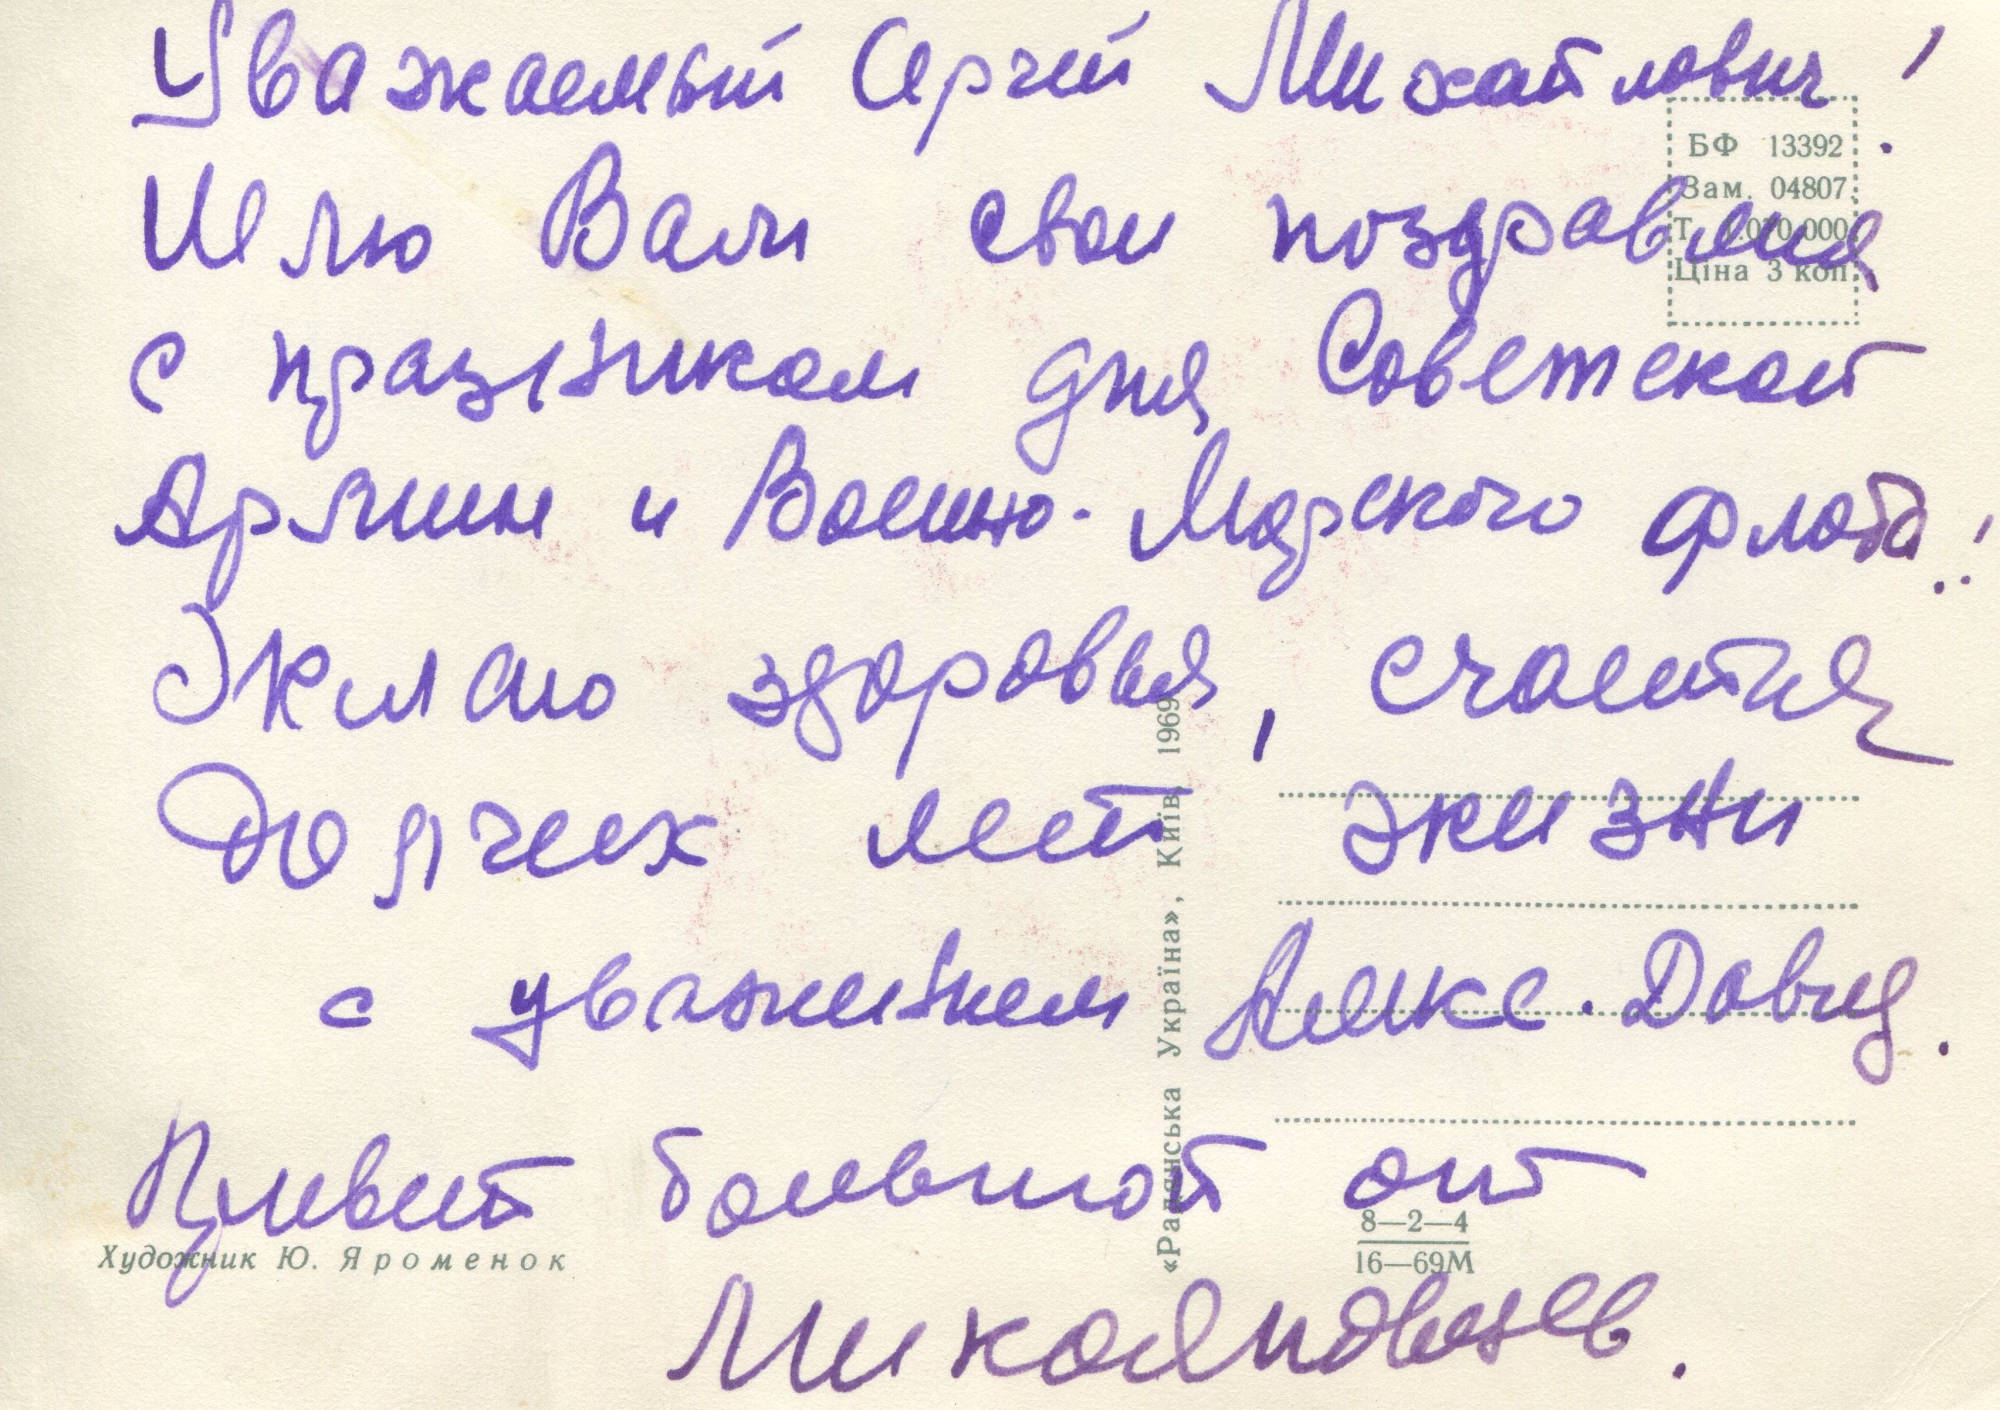 Уважаемый Сергей Михайлович!
Шлю Вам свои поздравлия
с празникам дня Советской
Армии и Военно-Морского флота!
Желаю здоровья, счастия
Долгих лет жизни
с уваженим Алекс. Давид.
Привет большой от
БФ 13392
Зам. 04807.
Ціна 3 коп
«Радянська Україна», Київ, 1969
Художник Ю. Яроменок
8—2—4
16—69М